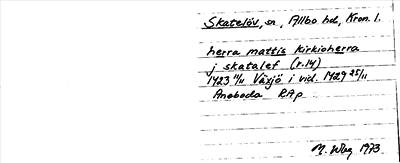 Skatelöv, sn, Allbo hd, Kron. l.
herra mattis kirkioherra
j skatalef (r. 14)
1423 11/11 Växjö i vid. 1429 25/11
Aneboda RAp
M. Wbg 1973